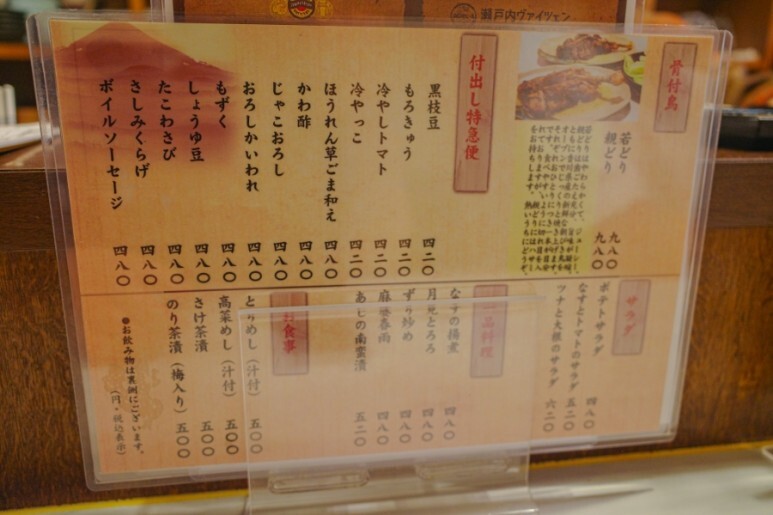 瀬戸内ヴァイツェン
骨付鳥
若どり 九八〇
親どり 九八〇
付出し特急便
黒枝豆 四二〇
もろきゅう 四二〇
冷やしトマト 四二〇
冷やっこ 四二〇
ほうれん草ごま和え 四八〇
かわ酢 四八〇
じゃこおろし 四八〇
おろしかいわれ 四八〇
もずく 四八〇
しょうゆ豆 四八〇
たこわさび 四八〇
さしみくらげ 四八〇
ボイルソーセージ 四八〇
サラダ
ポテトサラダ 四八〇
なすとトマトのサラダ 五二〇
ツナと大根のサラダ 六二〇
一品料理
なすの揚煮 四八〇
月見とろろ 四八〇
ずり炒め 四八〇
麻婆春雨 四八〇
あじの南蛮漬 五二〇
お食事
とりめし(汁付) 五〇〇
高菜めし(汁付) 五〇〇
さけ茶漬 五〇〇
のり茶漬(梅入り) 五〇〇
※お飲み物は裏側にございます。
(円・税込表示)